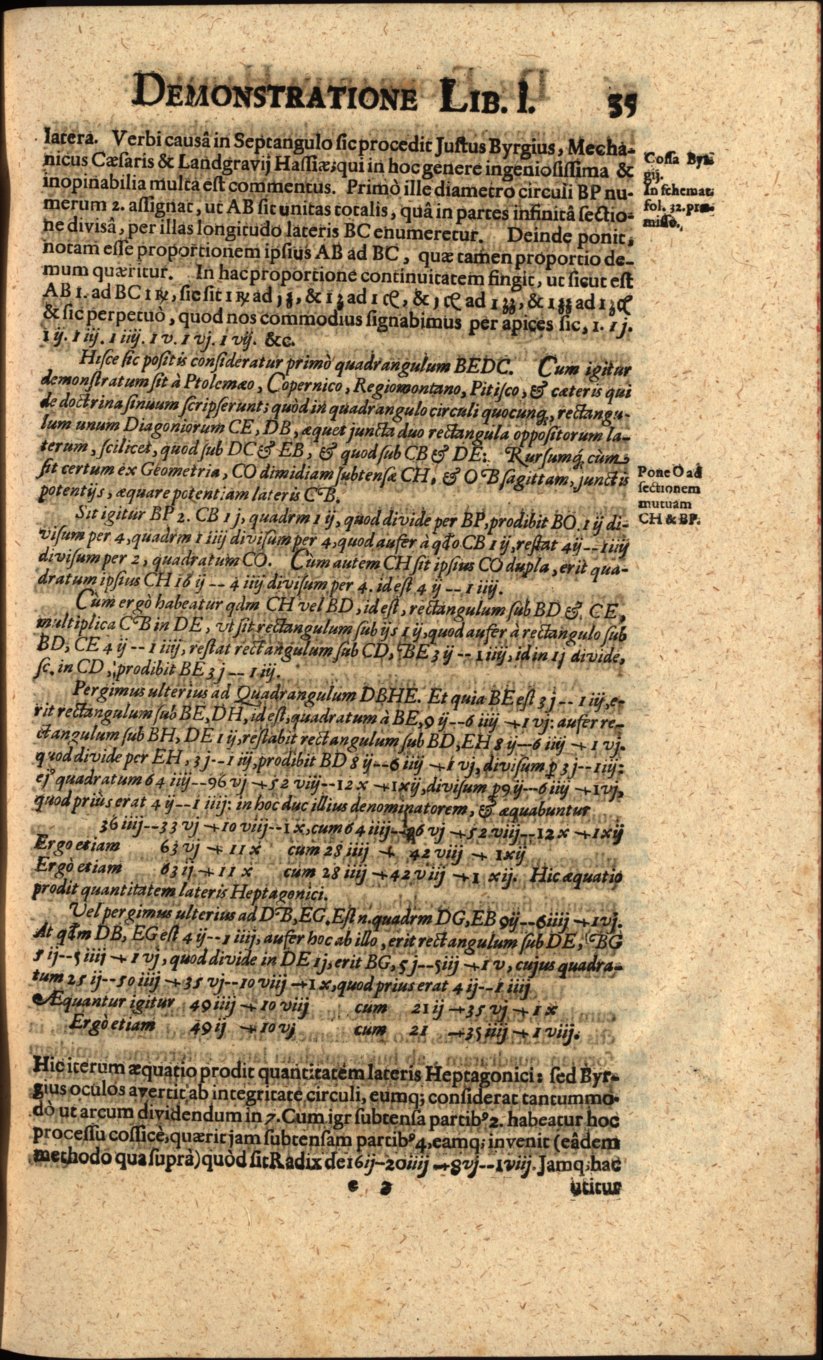 DEMONSTRATIONE LIB. I. 35
latera. Verbi causâ in Septangulo sic procedit Justus Byrgius, Mecha-
nicus Cæsaris & Landgravij Hassiæ; qui in hoc genere ingeniosissima &
inopinabilia multa est commentus. Primò ille diametro circuli BP nu-
merum 2. assignat, ut AB sit unitas totalis, quâ in partes infinitâ sectio-
ne divisâ, per illas longitudo lateris BC enumeretur. Deinde ponit,
notam esse proportionem ipsius AB ad BC, quæ tamen proportio de-
mum quæritur. In hac proportione continuitatem fingit, ut sicut est
AB 1. ad BC 1 ꝶ, sic sit 1 ꝶ ad
& sic perpetuò, quod nos commodius signabimus per apices sic, 1. 1 j.
1 ij. 1 iij. 1 iiij. 1 v. 1 vj. 1 vij. &c.
Cossa Byr-
gij.
In schemat:
fol. 32. præ-
misso.
Hisce sic positis consideratur primò quadrangulum BEDC. Cum igitur
demonstratum sit à Ptolemæo, Copernico, Regiomontano, Pitisco, & cæteris qui
de doctrina sinuum scripserunt; quòd in quadrangulo circuli quocunq;, rectangu-
lum unum Diagoniorum CE, DB, æquet juncta duo rectangula oppositorum la-
terum, scilicet, quod sub DC & EB, & quod sub CB & DE: Rursumq; cùm
sit certum ex Geometria, CO dimidiam subtensæ CH, & OB sagittam, junctis
potentijs, æquare potentiam lateris CB.
Pone O ad
sectionem
mutuam
CH & BP.
Sit igitur BP 2. CB 1 j, quadrm 1 ij, quod divide per BP, prodibit BO. 1 ij di-
visum per 4, quadrm 1 iiij divisum per 4, quod aufer à qdo CB 1 ij, restat 4 ij -- 1 iiij
divisum per 2, quadratum CO. Cùm autem CH sit ipsius CO dupla, erit qua-
dratum ipsius CH 16 ij -- 4 iiij divisum per 4. id est 4 ij -- 1 iiij.
Cùm ergò habeatur qdm CH vel BD, id est, rectangulum sub BD & CE,
multiplica CB in DE, ut sit rectangulum sub ijs 1 ij, quod aufer à rectangulo sub
BD, CE 4 ij -- 1 iiij, restat rectangulum sub CD, BE 3 ij -- 1 iiij, id in 1 j divide,
sc. in CD, prodibit BE 3 j -- 1 iij.
Pergimus ulterius ad Quadrangulum DBHE. Et quia BE est 3 j -- 1 iij, e-
rit rectangulum sub BE, DH, id est, quadratum à BE, 9 ij -- 6 iiij -+ 1 vj: aufer re-
ctangulum sub BH, DE 1 ij, restabit rectangulum sub BD, EH 8 ij -- 6 iiij -+ 1 vj.
quod divide per EH, 3 j -- 1 iij, prodibit BD 8 ij -- 6 iiij -+ 1 vj, divisum p 3 j -- 1 iij:
ej⁹ quadratum 64 iiij -- 96 vj -+ 52 viij -- 12 x -+ 1 xij, divisum p 9 ij -- 6 iiij -+ 1 vj,
quod priùs erat 4 ij -- 1 iiij: in hoc duc illius denominatorem, & æquabuntur
36 iiij -- 33 vj -+ 10 viij -- 1 x, cum 64 iiij -- 96 vj -+ 52 viij -- 12 x -+ 1 xij
Ergo etiam 63 vj -+ 11 x cum 28 iiij -+ 42 viij -+ 1 xij
Ergò etiam 63 ij -+ 11 x cum 28 iiij -+ 42 viij -+ 1 xij. Hic æquatio
prodit quantitatem lateris Heptagonici.
Vel pergimus ulterius ad DB, EG. Est n. quadrm DG, EB 9 ij -- 6 iiij -+ 1 vj.
At qdm DB, EG est 4 ij -- 1 iiij, aufer hoc ab illo, erit rectangulum sub DE, BG
5 ij -- 5 iiij -+ 1 vj, quod divide in DE 1 j, erit BG, 5 j -- 5 iij -+ 1 v, cujus quadra-
tum 25 ij -- 50 iiij -+ 35 vj -- 10 viij -+ 1 x, quod prius erat 4 ij -- 1 iiij
Æquantur igitur 49 iiij -+ 10 viij cum 21 ij -+ 35 vj -+ 1 x
Ergò etiam 49 ij -+ 10 vj cum 21 -+ 35 iiij -+ 1 viij.
Hic iterum æquatio prodit quantitatem lateris Heptagonici: sed Byr-
gius oculos avertit ab integritate circuli, eumq; considerat tantummo-
dò ut arcum dividendum in 7. Cum igr subtensa partib⁹ 2. habeatur hoc
processu cossicè, quærit jam subtensam partib⁹ 4, eamq; invenit (eâdem
methodo qua suprà) quòd sit Radix de 16 ij -- 20 iiij -+ 8 vj -- 1 viij. Jamq; hac
e 2 utitur